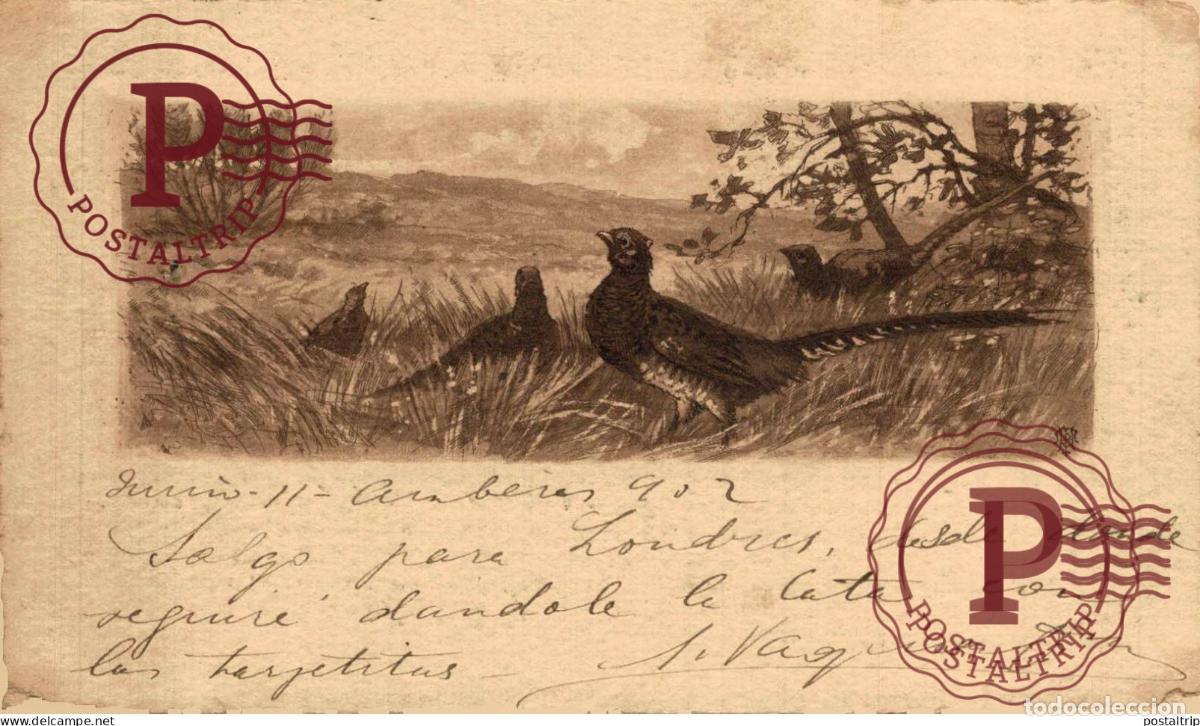 P
POSTALTRIP
Junio - 11 - Amberes 902
Salgo para Londres, desde donde
seguiré dandole la lata con
las tarjetitas -
P
POSTALTRIP
POSTALTRIP
todocoleccion
www.todocoleccion.net
postaltrip